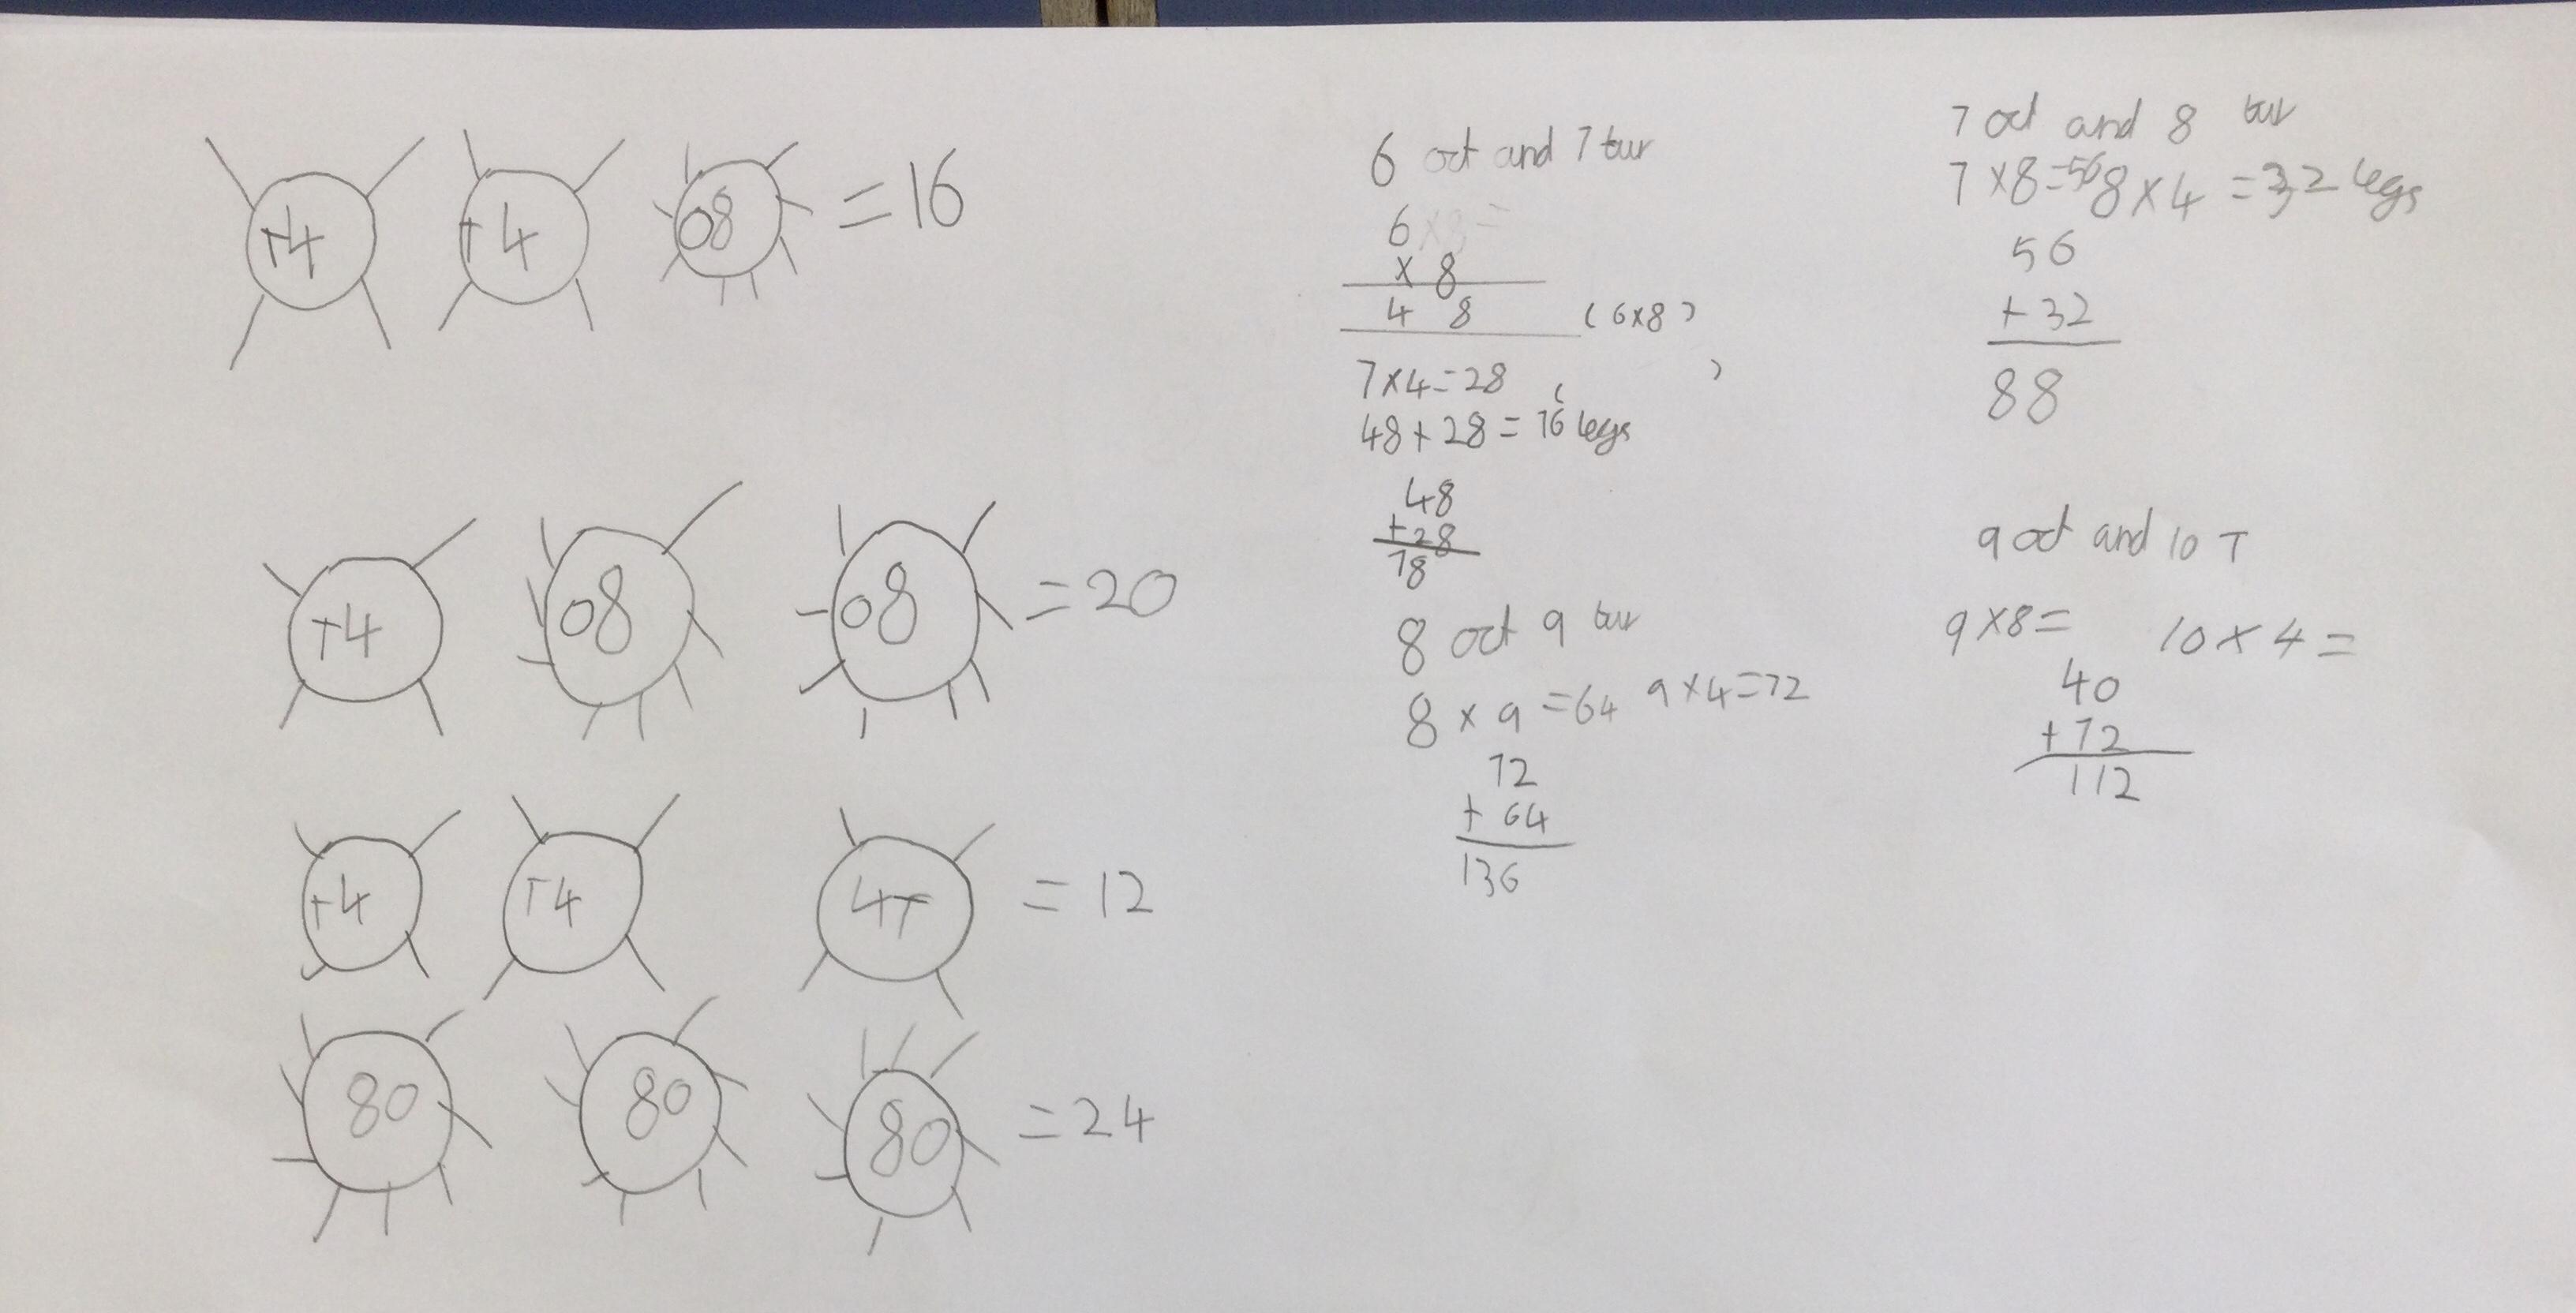 T4 T4 O8 = 16
T4 O8 O8 = 20
T4 T4 4T = 12
8O 8O 8O = 24
6 oct and 7 tur
6
x 8
4 8 (6x8)
7x4=28 ( )
48+28=76 legs
48
+28
78
8 oct 9 tur
8 x 9 =64 9x4=72
72
+ 64
136
7 oct and 8 tur
7x8=56 8x4=32 legs
56
+32
88
9 oct and 10 T
9x8= 10x4=
40
+72
112